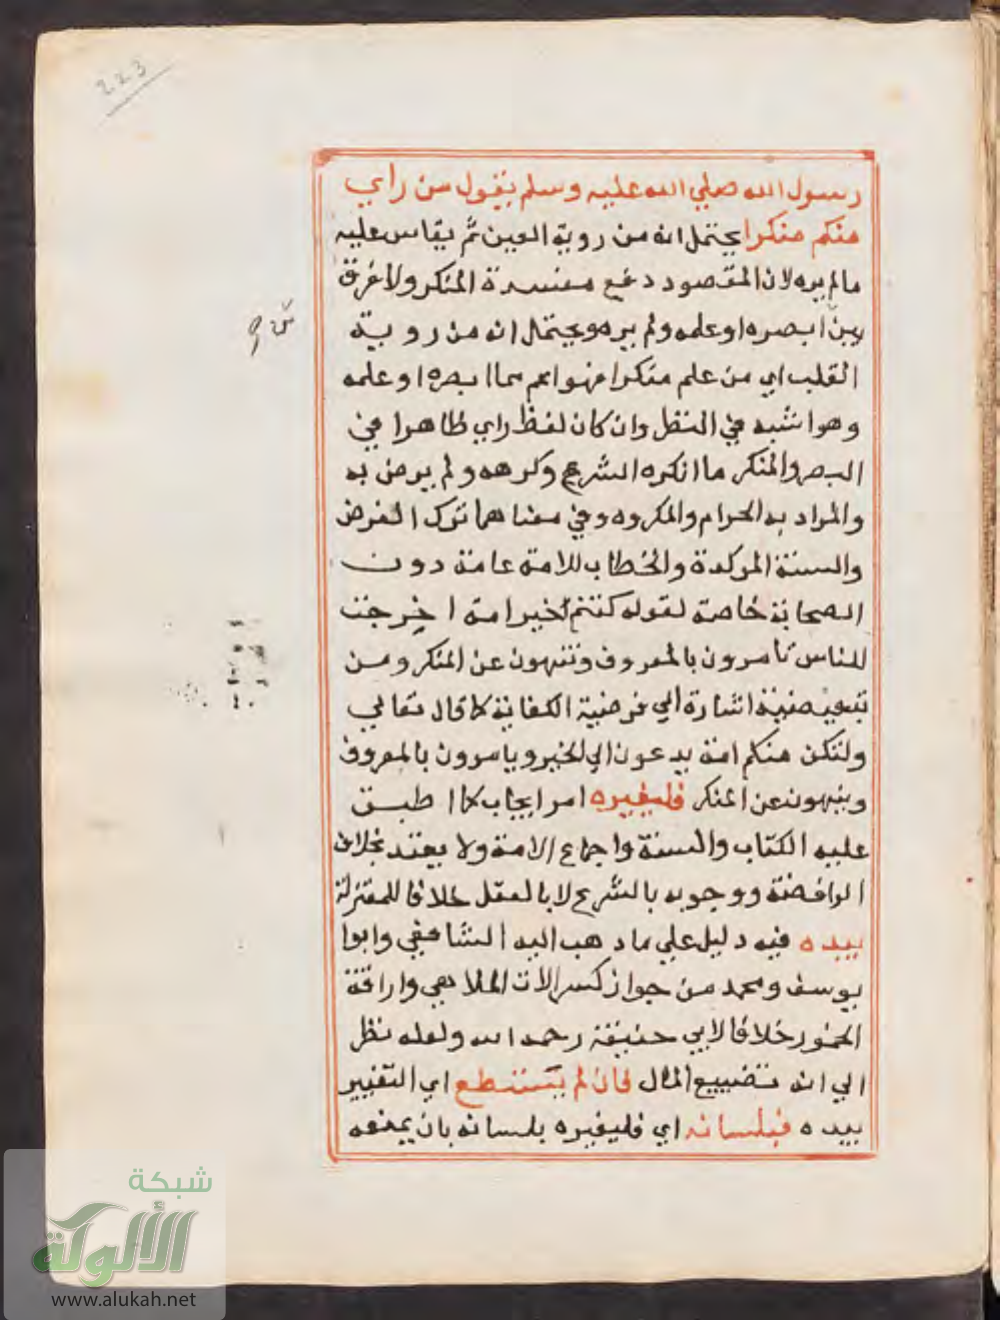 223
رسول الله صلي الله عليه وسلم يقول من راي
منكم منكرا يحتمل انه من روية العين ثم يقاس عليه
مالم يره لان المقصود دفع مفسدة المنكر ولا فرق
بين ابصره او علمه ولم يره ويحتمل انه من روية
القلب اي من علم منكرا فهو اعم مما ابصره او علمه
وهو اشبه في النقل وان كان لفظ راي ظاهرا في
البصر والمنكر ما انكره الشرع وكرهه ولم يرض به
والمراد به الحرام والمكروه وفي معناهما ترك الفرض
والسنة الموكدة والخطاب للامة عامة دون
الصحابة خاصة لقوله كنتم خير امة اخرجت
للناس تامرون بالمعروف وتنهون عن المنكر ومن
تبعيضية اشارة الي فرضية الكفاية كما قال تعالي
ولتكن منكم امة يدعون الي الخير ويامرون بالمعروف
وينهون عن المنكر فليغيره امر ايجاب كما اطبق
عليه الكتاب والسنة واجماع الامة ولا يعتد بخلاف
الرافضة ووجوبه بالشرع لا بالعقل خلافا للمعتزلة
بيده فيه دليل علي ما ذهب اليه الشافعي وابوا
يوسف ومحمد من جواز كسر الات الملاهي واراقة
الخمور خلافا لابي حنيفة رحمه الله ولعله نظر
الي انه تضييع المال فان لم يستطع اي التغيير
بيده فبلسانه اي فليغيره بلسانه بان يمنعه
شبكة
الألوكة
www.alukah.net